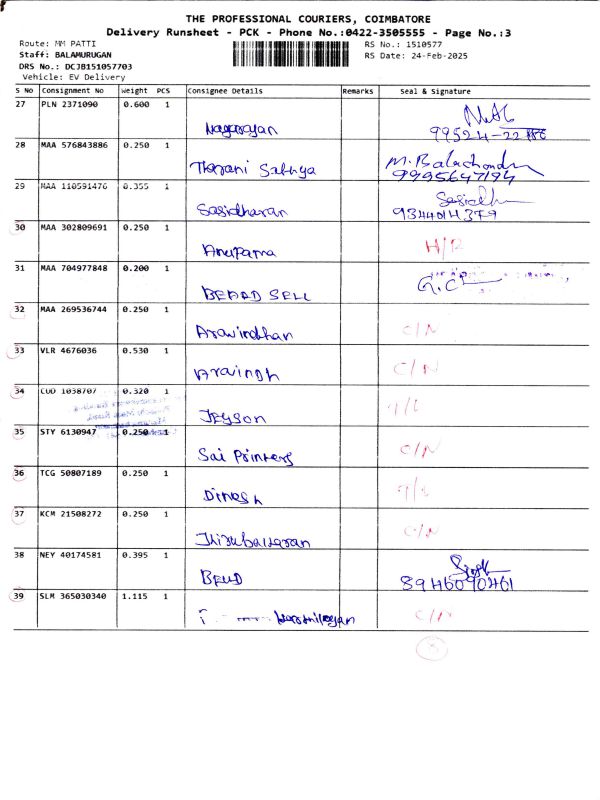 THE PROFESSIONAL COURIERS, COIMBATORE
Delivery Runsheet - PCK - Phone No.:0422-3505555 - Page No.:3
Route: MM PATTI
RS No.: 1510577
Staff: BALAMURUGAN
RS Date: 24-Feb-2025
DRS No.: DCJB151057703
Vehicle: EV Delivery
S No Consignment No Weight PCS Consignee Details Remarks Seal & Signature
27 PLN 2371090 0.600 1
Nagarajan
99524-22
28 MAA 576843886 0.250 1
Tharani Sathya M. Balachandu
9995647194
29 MAA 110591476 0.355 1
Sasidharan 9344014379
30 MAA 302809691 0.250 1
Anupama H/R
31 MAA 704977848 0.200 1
BEARD SELL
32 MAA 269536744 0.250 1
Aravindhan C/N
33 VLR 4676036 0.530 1
Aravindh C/N
34 COD 1038707 0.320 1
Jeyson
35 STY 6130947 0.250 1
Sai Printers C/N
36 TCG 50807189 0.250 1
Dinesh
37 KCM 21508272 0.250 1
C/N
38 NEY 40174581 0.395 1
8946090461
39 SLM 365030340 1.115 1
C/N